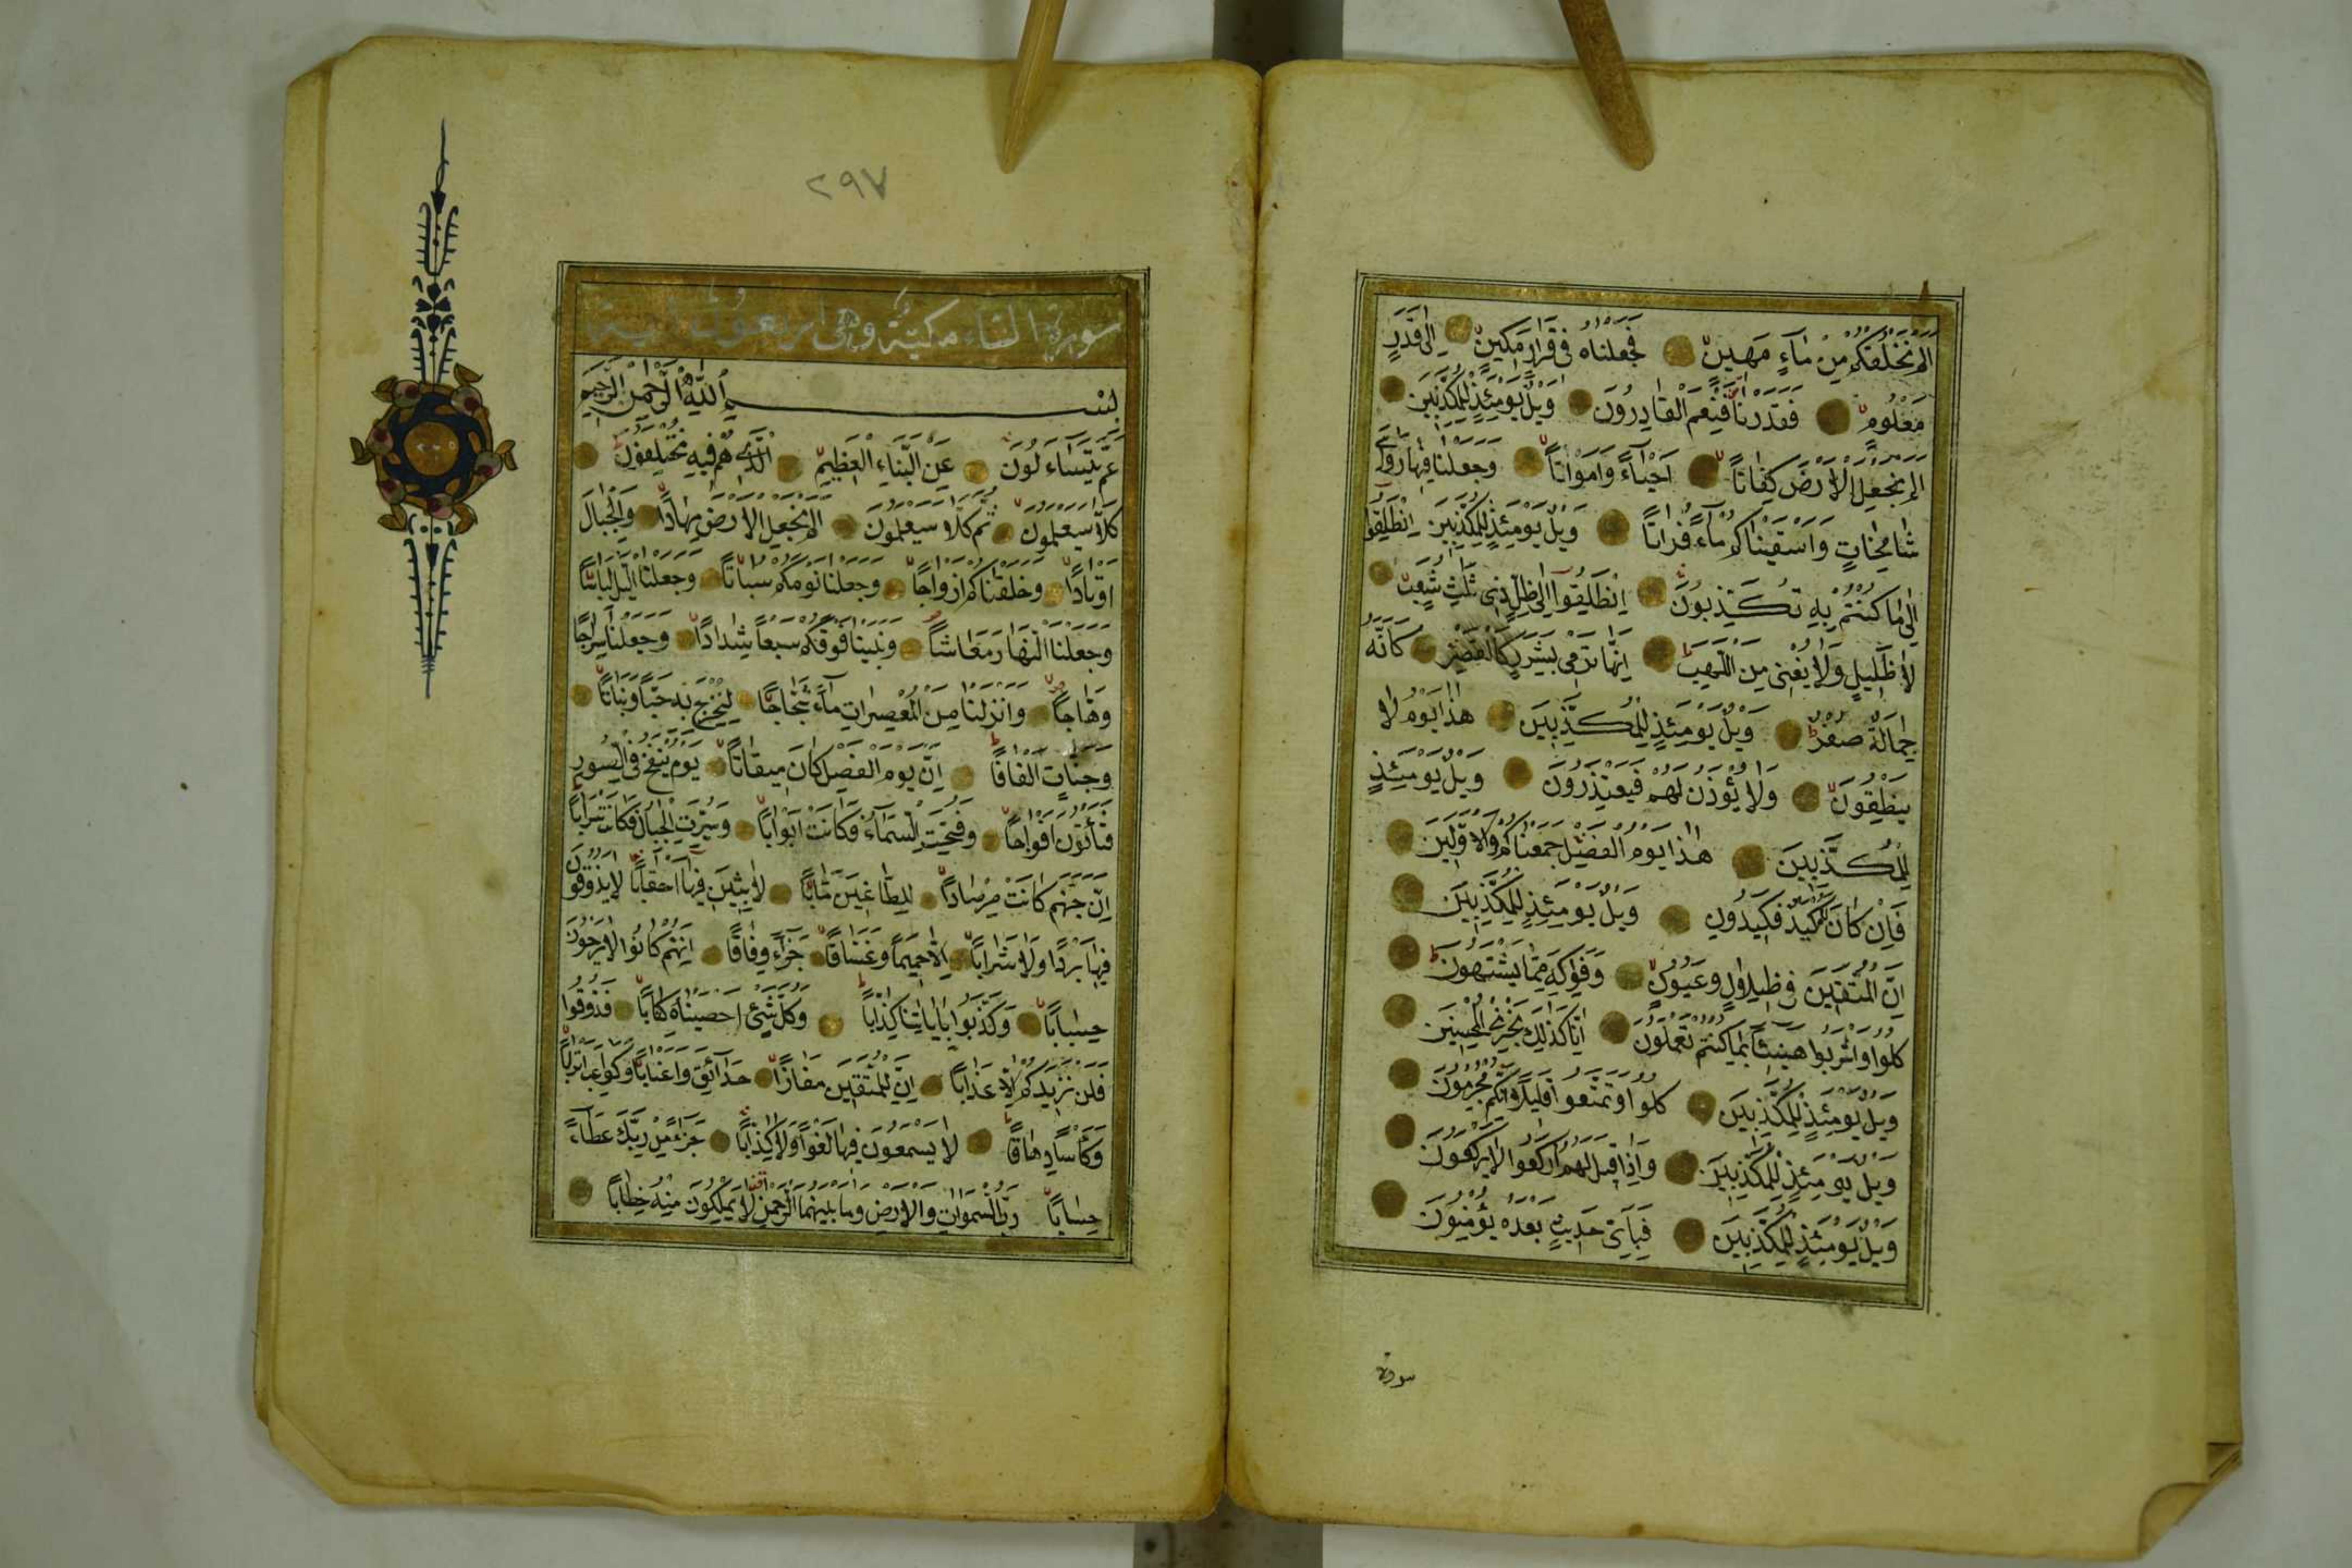 الم نخلقكم من ماء مهين فجعلناه في قرار مكين الى قدر
معلوم فقدرنا فنعم القادرون ويل يومئذ للمكذبين
الم نجعل الارض كفاتا احياء وامواتا وجعلنا فيها رواسي
شامخات واسقيناكم ماء فراتا ويل يومئذ للمكذبين انطلقوا
الى ما كنتم به تكذبون انطلقوا الى ظل ذي ثلث شعب
لا ظليل ولا يغني من اللهب انها ترمي بشرر كالقصر كانه
جمالة صفر ويل يومئذ للمكذبين هذا يوم لا
ينطقون ولا يؤذن لهم فيعتذرون ويل يومئذ
للمكذبين هذا يوم الفصل جمعناكم والاولين
فان كان لكم كيد فكيدون ويل يومئذ للمكذبين
ان المتقين في ظلال وعيون وفواكه مما يشتهون
كلوا واشربوا هنيئا بما كنتم تعملون انا كذلك نجزي المحسنين
ويل يومئذ للمكذبين كلوا وتمتعوا قليلا انكم مجرمون
ويل يومئذ للمكذبين واذا قيل لهم اركعوا لا يركعون
ويل يومئذ للمكذبين فباي حديث بعده يؤمنون
سورة
٢٩٧
سورة النباء مكية وهي اربعون اية
بسم الله الرحمن الرحيم
عم يتساءلون عن النباء العظيم الذي هم فيه مختلفون
كلا سيعلمون ثم كلا سيعلمون الم نجعل الارض مهادا والجبال
اوتادا وخلقناكم ازواجا وجعلنا نومكم سباتا وجعلنا اليل لباسا
وجعلنا النهار معاشا وبنينا فوقكم سبعا شدادا وجعلنا سراجا
وهاجا وانزلنا من المعصرات ماء ثجاجا لنخرج به حبا ونباتا
وجنات الفافا ان يوم الفصل كان ميقاتا يوم ينفخ في الصور
فتأتون افواجا وفتحت السماء فكانت ابوابا وسيرت الجبال فكانت سرابا
ان جهنم كانت مرصادا للطاغين مابا لابثين فيها احقابا لا يذوقون
فيها بردا ولا شرابا الا حميما وغساقا جزاء وفاقا انهم كانوا لا يرجون
حسابا وكذبوا باياتنا كذابا وكل شئ احصيناه كتابا فذوقوا
فلن نزيدكم الا عذابا ان للمتقين مفازا حدائق واعنابا وكواعب اترابا
وكأسا دهاقا لا يسمعون فيها لغوا ولا كذابا جزاء من ربك عطاء
حسابا رب السموات والارض وما بينهما الرحمن لا يملكون منه خطابا